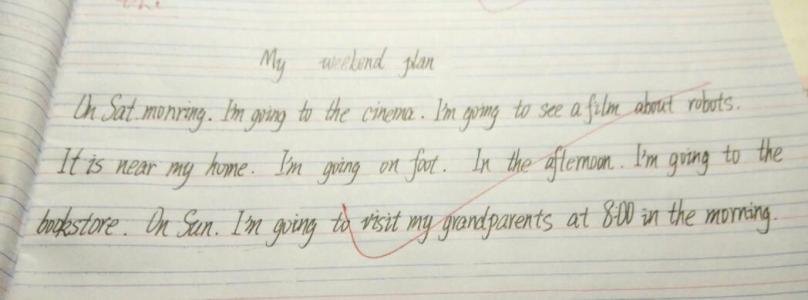 My weekend plan
On Sat. monring. I'm going to the cinema. I'm going to see a film about robots.
It is near my home. I'm going on foot. In the afternoon. I'm going to the
bookstore. On Sun. I'm going to visit my grandparents at 8:00 in the morning.